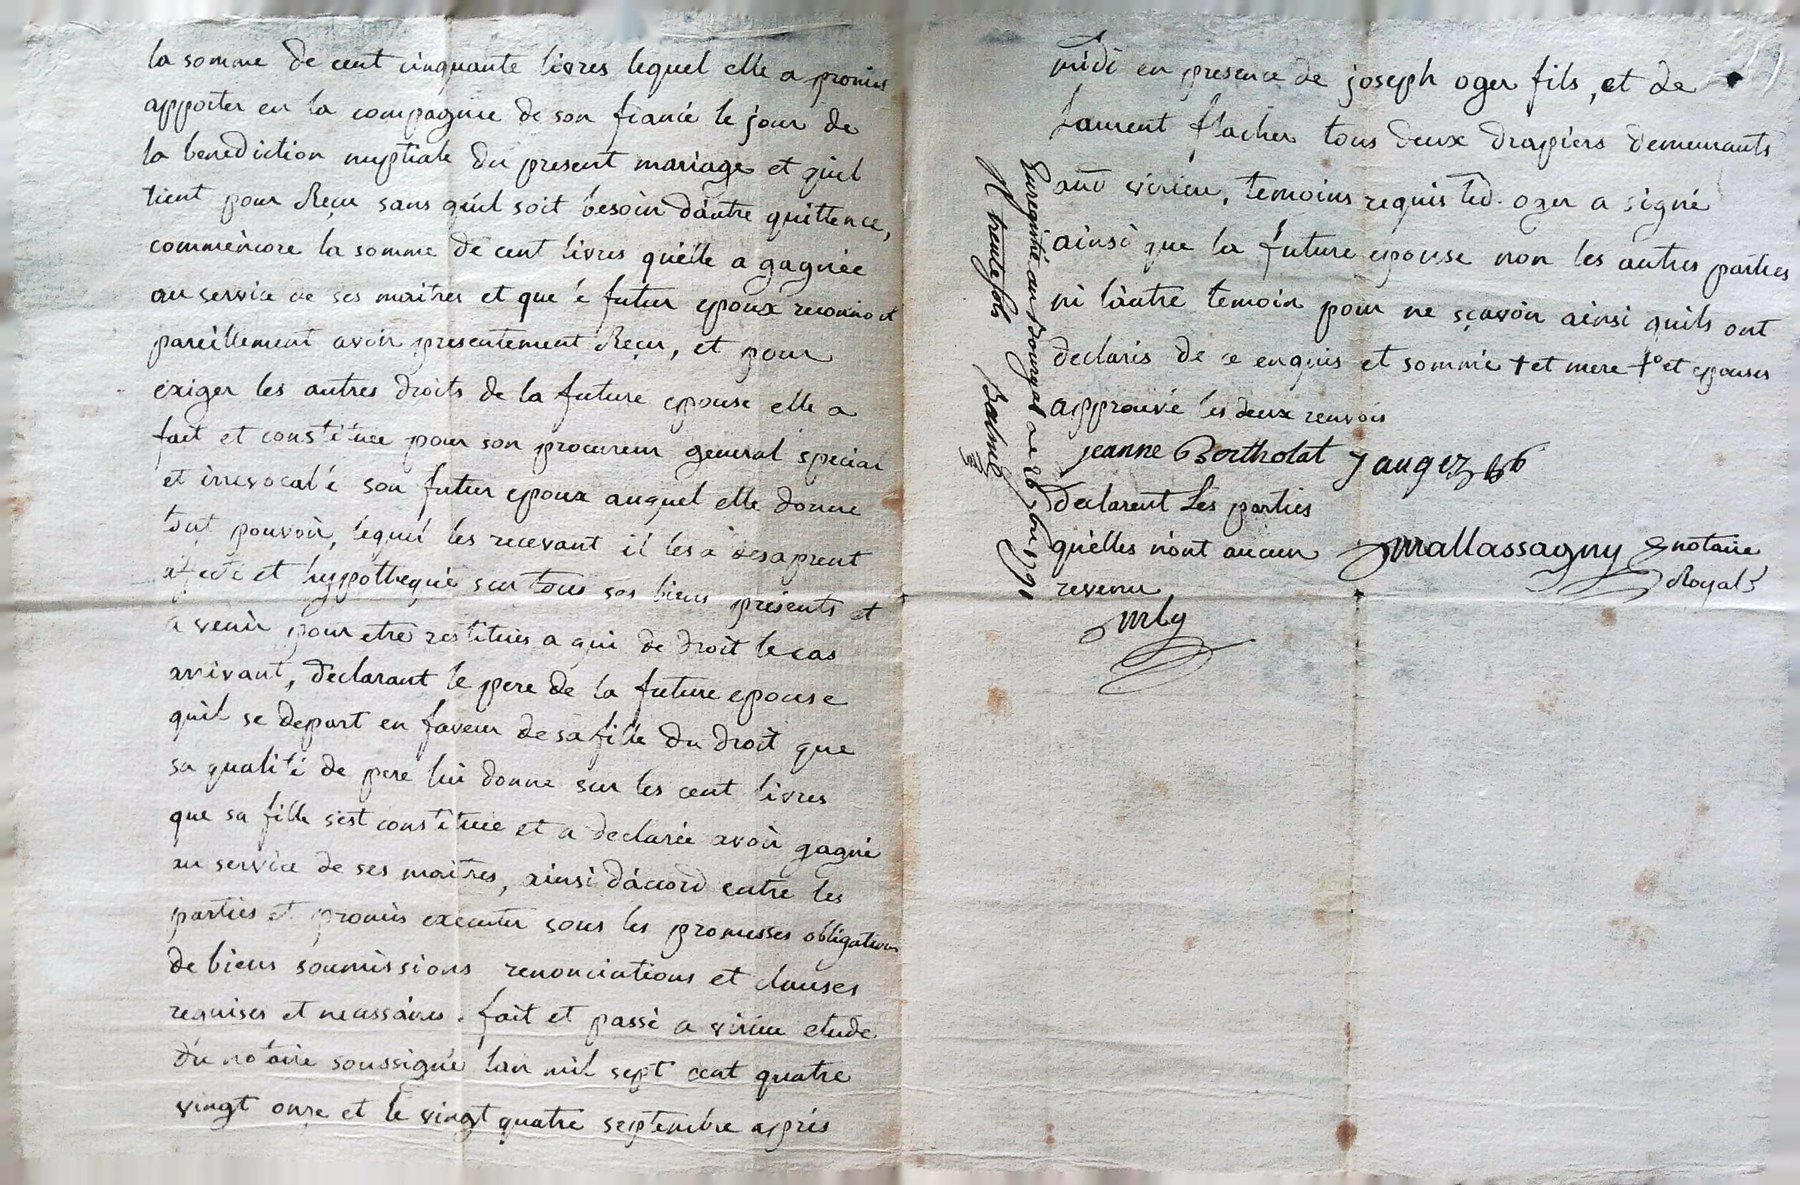 la somme de cent cinquante livres lequel elle a promis
apporter en la compagnie de son fiancé le jour de
la benediction nuptiale du present mariage et quil
tient pour Reçu sans qu'il soit besoin d'autre quittence,
comm'encore la somme de cent livres qu'elle a gagnée
au service de ses maitres et que le futur epoux reconnoit
pareillement avoir presentement Reçu, et pour
exiger les autres droits de la future epouse elle a
fait et constituée pour son procureur general special
et irrevocable son futur epoux auquel elle donne
tout pouvoir, lequel les recevant il les a des a present
affecté et hypothequé sur tous ses biens présents et
a venir pour etre restitués a qui de droit le cas
arrivant, declarant le pere de la future epouse
quil se depart en faveur de sa fille du droit que
sa qualité de pere lui donne sur les cent livres
que sa fille s'est constituée et a declarée avoir gagné
au service de ses maitres, ainsi d'accord entre les
parties et promis executer sous les promesses obligations
de biens soumissions renonciations et clauses
requises et necessaires. fait et passé a virieu etude
du notaire soussigné lan mil sept cent quatre
vingt onze et le vingt quatre septembre après
midi en presence de joseph oger fils, et de
Laurent flacher tous deux drapiers demeurants
aud virieu, temoins requis led. oger a signé
ainsi que la future epouse non les autres parties
ni l'autre temoin pour ne sçavoir ainsi quils ont
declarés de ce enquis et sommé + et mere +° et epouses
approuvé les deux renvois
jeanne Bertholat J auger
declarent Les parties
qu'elles n'ont aucun
revenu
mallassagny notaire
Royal
mly
Enregistré au Bourget le 26 7bre 1791
R trente sols